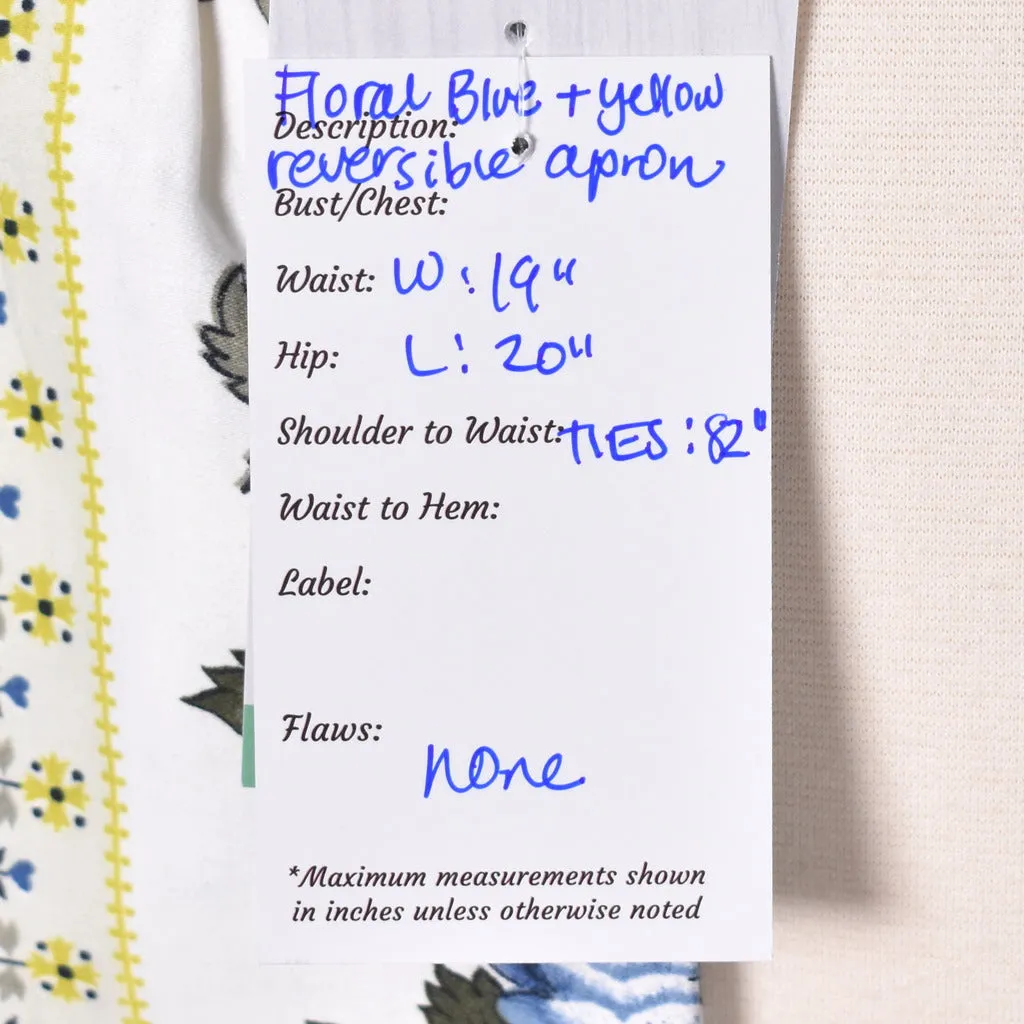 Floral Blue + yellow
Description:
reversible apron
Bust/Chest:
Waist: W: 19"
Hip: L: 20"
Shoulder to Waist: TIES: 82"
Waist to Hem:
Label:
Flaws:
none
*Maximum measurements shown
in inches unless otherwise noted